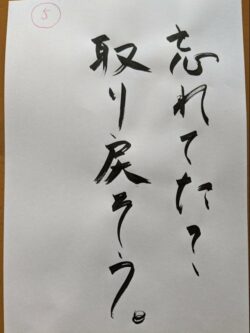 忘れてた？
取り戻そう。
5